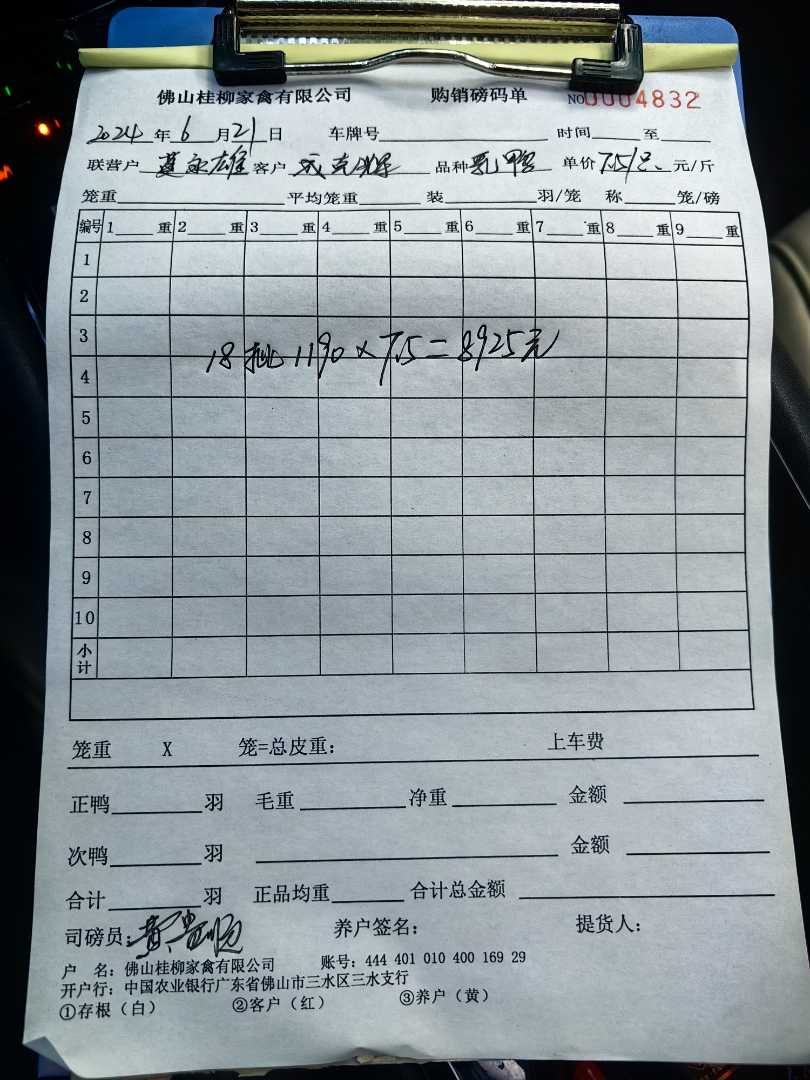 佛山桂柳家禽有限公司 购销磅码单 NO0004832
2024年6月21日 车牌号 时间 至
联营户 永雄 客户 品种 乳鸭 单价 7.5/只 元/斤
笼重 平均笼重 装 羽/笼 称 笼/磅
编号 1 重 2 重 3 重 4 重 5 重 6 重 7 重 8 重 9 重
1
2
3
18 1190×7.5=8925元
4
5
6
7
8
9
10
小计
笼重 X 笼=总皮重: 上车费
正鸭 羽 毛重 净重 金额
次鸭 羽 金额
合计 羽 正品均重 合计总金额
司磅员: 黄 养户签名: 提货人:
户 名: 佛山桂柳家禽有限公司 账号: 444 401 010 400 169 29
开户行: 中国农业银行广东省佛山市三水区三水支行
①存根(白) ②客户(红) ③养户(黄)